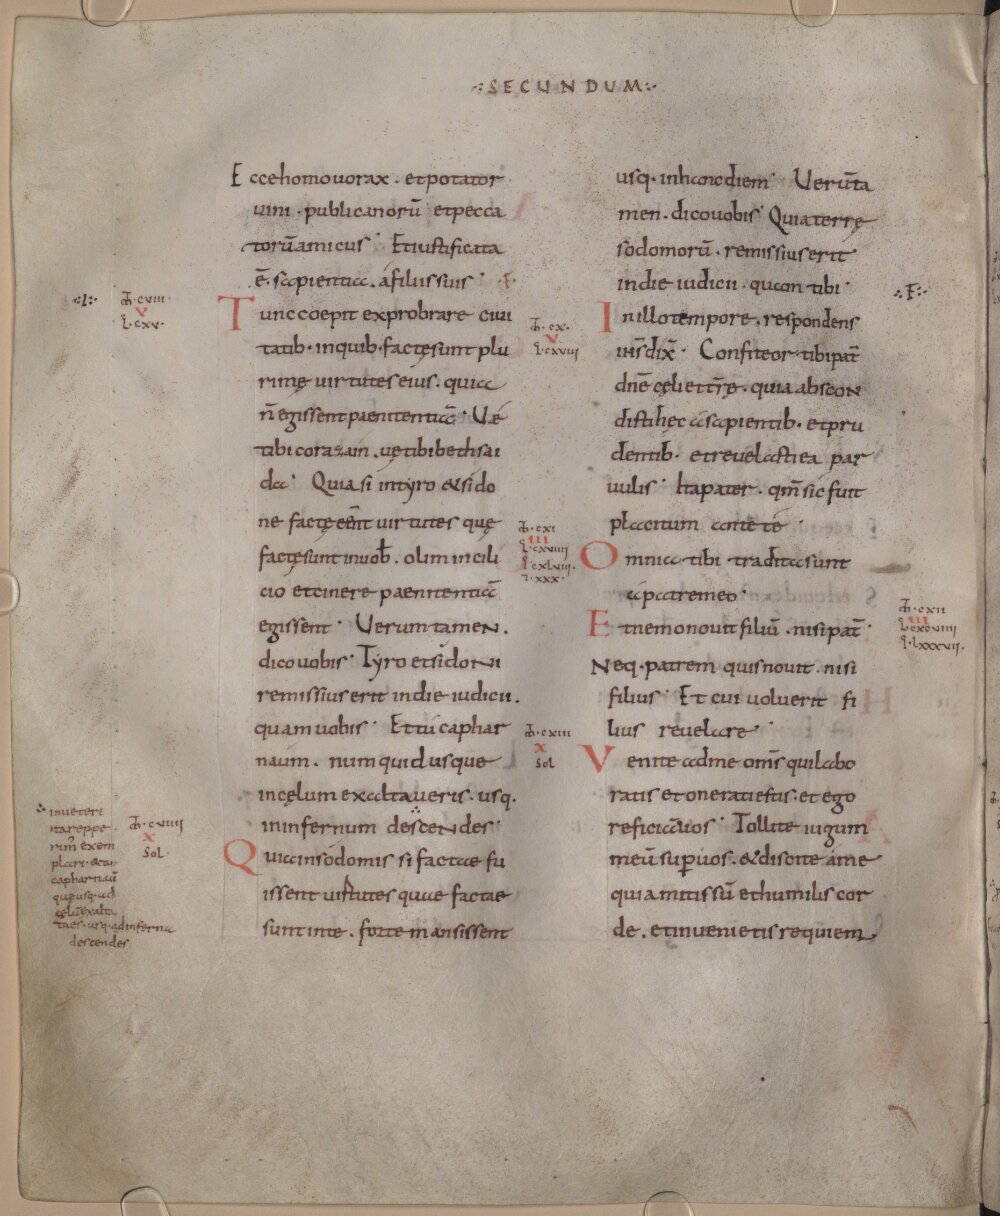 ·:SECUNDUM:·
Ecce homo uorax . et potator
uini . publicanorū et pecca
torū amicus · Et iustificata
ē. sapientia . a filiis suis ·
Tunc coepit exprobrare ciui
tatib· in quib· factę sunt plu
rimę uirtutes eius . quia
n̄ egissent paenitentiā · Ue
tibi corazain . uę tibi bethsai
da · Quia si in tyro & sido
ne factę eēnt uirtutes quę
factę sunt in uob̄ . olim in cili
cio et cinere paenitentiā
egissent · Uerum tamen .
dico uobis · Tyro et sidoni
remissius erit in die iudicii .
quam uobis · Et tu caphar
naum . numquid usque
in cęlum exaltaueris . usq·
in infernum descendes ·
Quia in sodomis si factae fu
issent uirtutes quae factae
sunt in te . forte mansissent
usq· in hanc diem · Uerūta
men . dico uobis · Quia terrę
sodomorū . remissius erit
in die iudicii . quam tibi ·
In illo tempore . respondens
iħs dix̄ · Confiteor tibi pat̄
dn̄e cęli et tr̄ę . quia abscon
disti hęc a sapientib· et pru
dentib· et reuelasti ea par
uulis · Ita pater . qm̄ sic fuit
placitum ante te ·
Omnia tibi tradita sunt
a patre meo ·
Et nemo nouit filiū . nisi pat̄ ·
Neq· patrem quis nouit . nisi
filius · Et cui uoluerit fi
lius reuelare ·
Venite ad me oms̄ qui labo
ratis et onerati estis . et ego
reficiā uos · Tollite iugum
meū sup̄ uos . & discite a me
quia mitis sū et humilis cor
de . et inuenietis requiem
·I:·
m̄ · cuiii ·
v
l · cxv ·
m̄ · cx ·
v
l · cxuiii
m̄ · cxi
iii
l · cxuiiii
i · xxx ·
m̄ · cxiii
x
sol
m̄ · cuiiii
x
Sol
in ueteri
ita reppe
rim̄ exem
plari · & tu
capharnaū
quę usq· ad
cęlū exalta
ta es · usq· ad infernū
descendes
·:F:·
m̄ · cxii
iii
l · cxuiiii
i · lxxxuii ·